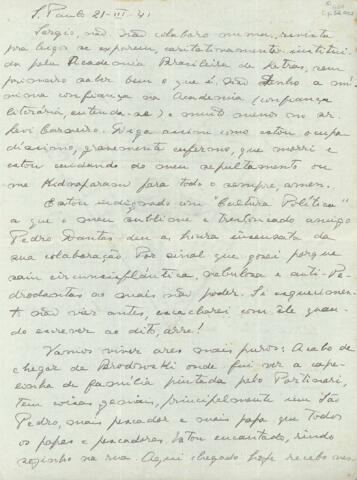 S. Paulo 21-III-41
Sergio, não, não colaboro numa revista
pra leigos se exporem, caritativamente instituí-
da pela Academia Brasileira de Letras, sem
primeiro saber bem o que é. Não tenho a mí-
nima confiança na Academia (confiança
literária, entenda-se) e muito menos no sr.
Levi Carneiro. Diga assim como estou ocupa-
díssimo, gravemente enfermo, que morri e
estou cuidando do meu sepultamento ou
me kidnaparam para todo o sempre, amen.
Estou indignado com "Cultura Política"
a que o meu sublime e trentonicado amigo
Pedro Dantas deu a honra insensata da
sua colaboração. Por sinal que gosei porque
saiu nebulosa e anti-Pe-
drodantas ao mais não poder. Se esqueci-
não vier antes, escacharei com êle quan-
do escrever ao dito, arre!
Vamos viver ares mais puros: Acabo de
chegar de Brodowski onde fui ver a cape-
linha de familia pintada pelo Portinari,
tem coisas geniais, principalmente um São
Pedro, mais pescador e mais papa que todos
os papas e pescadores. Estou encantado, rindo
sozinho na rua. Aqui chegado hoje recebo